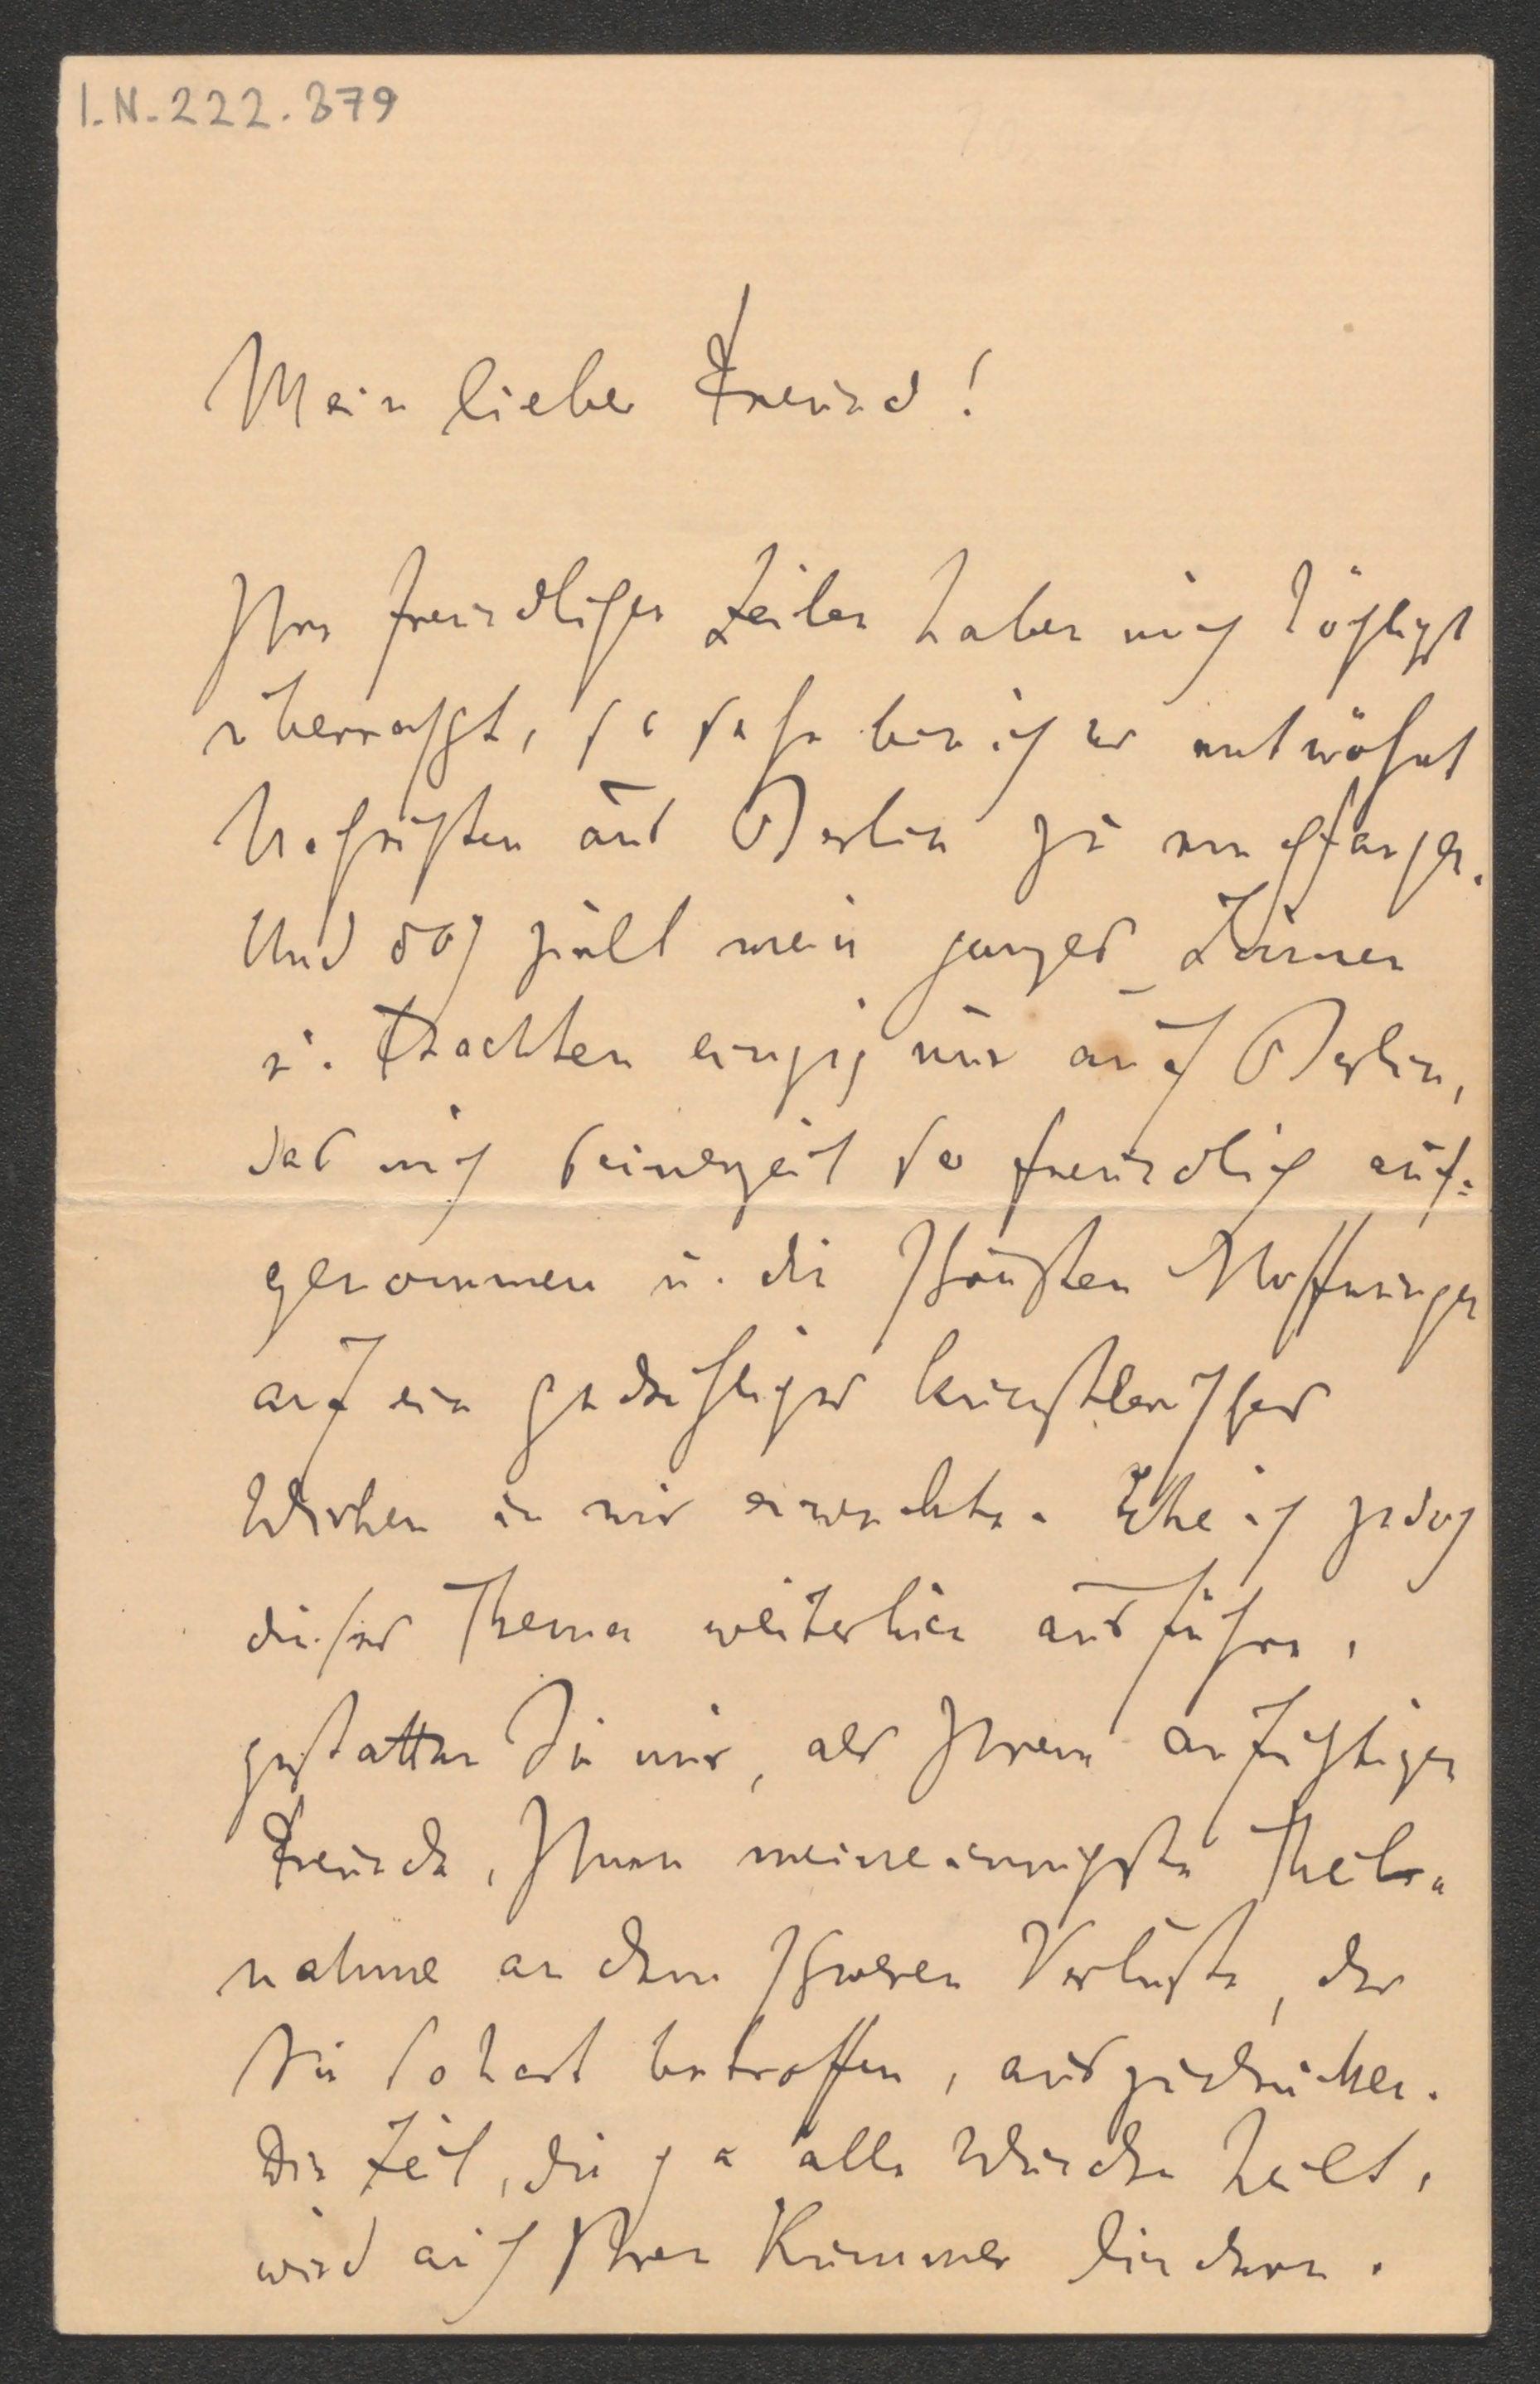 I.N. 222.379
Mein lieber Freund!
Ihre freundlichen Zeilen haben mich höchlichst
überrascht, so sehr bin ich es entwöhnt
Nachrichten aus Berlin zu empfangen.
Und doch zielt mein ganzes Sinnen
u. Trachten einzig nur auf Berlin,
das mich seinerzeit so freundlich auf=
genommen u. die schönsten Hoffnungen
auf ein gedeihliches künstlerisches
Wirken in mir erweckte. Ehe ich jedoch
dieses Thema weiterhin ausführe,
gestatten Sie mir, als Ihrem aufrichtigen
Freunde, Ihnen meine innigste Theil=
nahme an dem schweren Verluste, der
Sie so hart betroffen, auszudrücken.
Die Zeit, die ja alle Wunden heilt,
wird auch Ihren Kummer lindern.